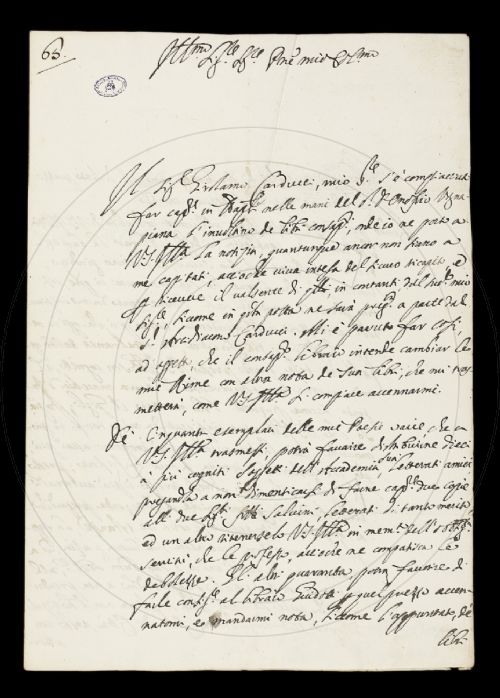 65.
Ill.mo Sig.re Sig.re P.rone mio Col.mo
Il Sig.r Girolamo Carducci, mio s'è compiaciuto
far cap.re in nelle mani del S.r D. Onofrio
l'involtino de libri consap.i, ond'io ne porto a
V.S. Ill.ma la notizia, quantunque ancor non siano a
me capitati, acciocche viva intesa del sicuro ricapito, e
si riceverà il valsente di essi, in contanti dal Sig.r mio
siccome in già posto ne sua a parte del
S.r Carducci. Mi è paruto far così,
ad effetto, che il consap.e libraio intende cambiar le
mie Rime con altra nota de suoi libri, che mi tras-
metterà, come V.S. Ill.ma si compiace accennarmi.
De Cinquanta esemplari delle mie Poesie varie, che a
V.S. Ill.ma trasmessi, potrà favorire distribuirne dieci
a più cogniti soggetti dell'Accademia, suoi letterati amici
pregandola a non dimenticarsi di farne cap.re due copie
alli due Sig.ri Salvini, letterati di tanto merito
ad un altro ritenerselo V.S. Ill.ma in mem.a dell'
servitù, che le professo, acciocche ne compatisca le
debolezze. Gl'altri quaranta potrà favorire di
farle cons.re al libraio Guidotti a quel prezzo accen-
natomi, e mandarmi nota, siccome l'appuntato, de
libri